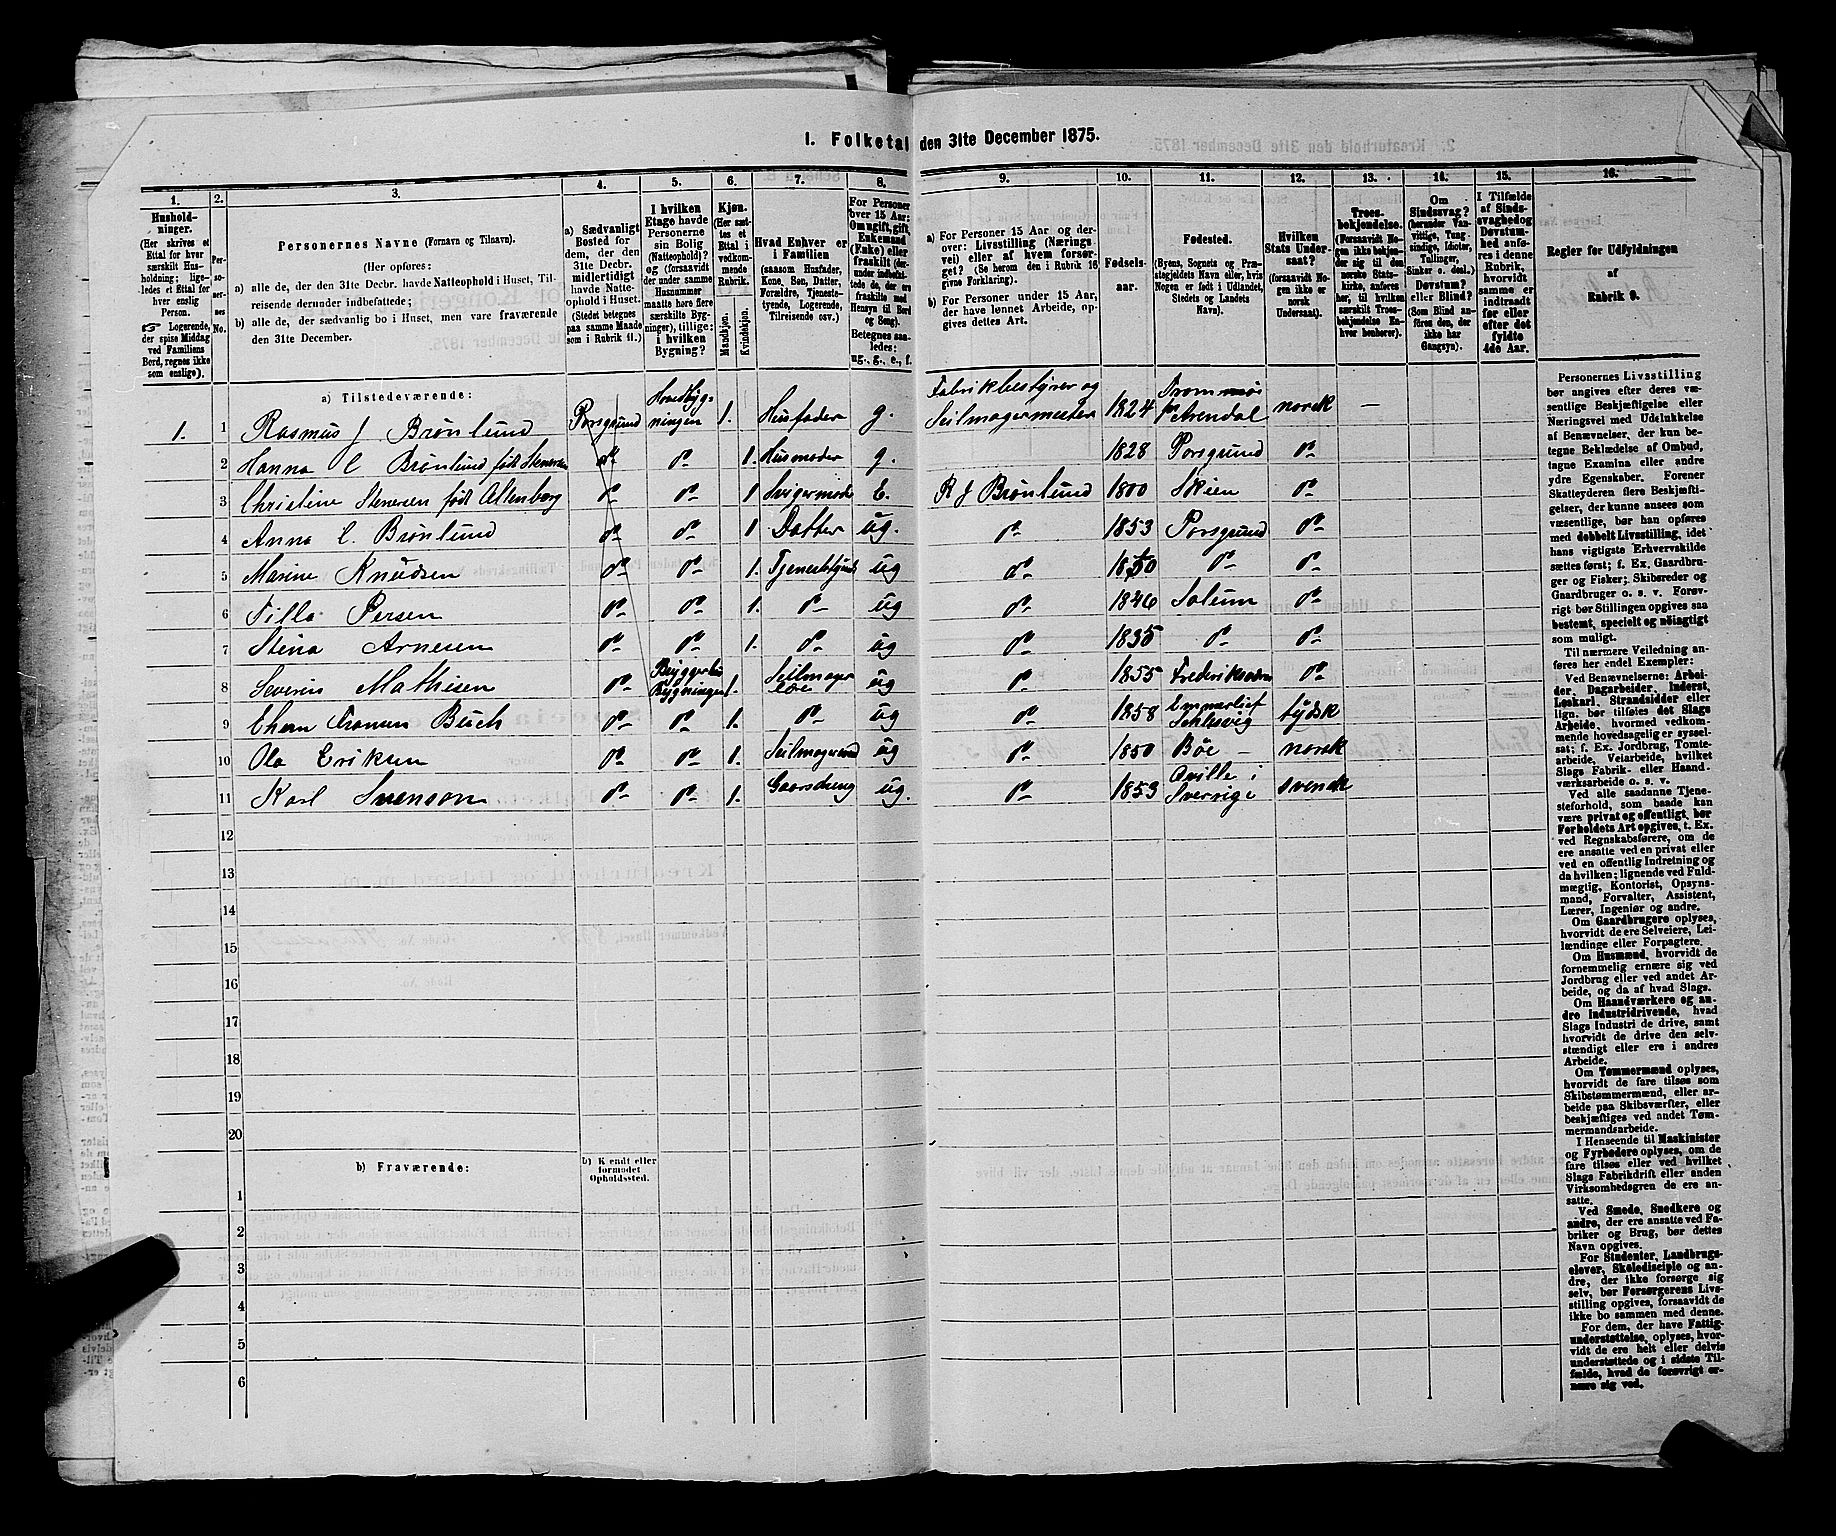 1. Folketal den 31te December 1875.
1. 2. 3. 4. 5. 6. 7. 8. 9. 10. 11. 12. 13. 14. 15. 16.
Husholdninger.
(Her skrives et
Ettal for hver
særskilt Husholdning;
ligeledes et Ettal for
hver enslig
Person.
☞ Logerende,
der spise Middag
ved Familiens
Bord, regnes ikke
som enslige).
Personernes No.
Personernes Navne (Fornavn og Tilnavn).
(Her opføres:
a) alle de, der den 31te Decbr. havde Natteophold i Huset, Tilreisende derunder indbefattede;
b) alle de, der sædvanlig bo i Huset, men vare fraværende
den 31te December.
a) Sædvanligt
Bosted for
dem, der den
31te Decbr.
midlertidigt
havde Natteophold
i Huset.
(Stedet betegnes
paa samme Maade
som i Rubrik 11.)
I hvilken
Etage havde
Personerne
sin Bolig
(Natteophold)?
og (forsaavidt
der under samme
Husnummer
maatte høre flere
særskilte Bygninger),
tillige:
i hvilken
Bygning?
Kjøn.
(Her sættes et
Ettal i
vedkommende
Rubrik.
Mandkjøn.
Kvindekjøn.
Hvad Enhver er
i Familien
(saasom Husfader,
Kone, Søn, Datter,
Forældre, Tjenestetyende,
Logerende,
Tilreisende osv.)
For Personer
over 15 Aar:
Om ugift, gift,
Enkemand
(Enke) eller
fraskilt
Betegnes saaledes:
ug., g., e., f.
a) For Personer 15 Aar og derover:
Livsstilling (Næringsvei)
eller af hvem forsørget?
(Se herom den i Rubrik 16
givne Forklaring).
b) For Personer under 15 Aar,
der have lønnet Arbeide, opgives
dettes Art.
Fødselsaar.
Fødested.
(Byens, Sognets og Præstegjeldets
Navn eller, hvis
Nogen er født i Udlandet,
Stedets og Landets
Navn).
Hvilken
Stats Undersaat?
(forsaavidt Nogen
ikke er
norsk
Undersaat).
Troesbekjendelse.
(Forsaavidt Nogen
ikke bekjender
sig til den
norske Statskirke,
anføres
her, til hvilken
særskilt Troesbekjendelse
Enhver
henhører).
Om
Sindssvag?
(herunder Vanvittige,
Tungsindige,
Idioter,
Tullinger,
Sinker o. desl.)
Døvstum?
eller Blind?
(Som Blind anføres
den, der
ikke har
Gangsyn).
I Tilfælde
af Sindssvaghed og
Døvstumhed
anføres
i denne
Rubrik,
hvorvidt
samme er
indtraadt
før eller
efter det
fyldte
4de Aar.
Regler for Udfyldningen
af
Rubrik 9.
a) Tilstedeværende:
1. 1 Rasmus J Brønlund Porsgrund Hovedbygningen 1. Husfader g. Fabrikbestyrer og Seilmagermester 1824 Trommøe pr Arendal norsk —
2 Hanna C Brønlund født Stenersen do do 1. Husmoder g. 1828 Porsgrund do
3 Christine Stenersen født Altenborg do do 1 Svigermoder E. R J Brønlund 1800 Skien do
4 Anna C. Brønlund do do 1 Datter ug. do 1853 Porsgrund do
5 Marine Knudsen do do 1. Tjenestetyende ug do 1850 do do
6 Tilla Persen do do 1. do ug do 1846 Solum do
7 Stina Arnesen do do 1. do ug do 1835 do do
8 Severin Mathisen do Bryggerhus Bygningen 1. ug do 1855 Fredriksværn do
9 Buch do do 1. do ug do 1858 Slesvig tydsk
10 Ola Eriksen do do 1. ug do 1850 Bøe — norsk
11 Karl Svenson do do 1. Gaardsdreng ug. do 1853 Qville i Sverrige svensk
12
13
14
15
16
17
18
19
20
b) Fraværende:
b) Kjendt eller
formodet
Opholdssted.
1
2
3
4
5
6
Personernes Livsstilling
bør angives efter deres væsentlige
Beskjæftigelse eller
Næringsvei med Udelukkelse
af Benævnelser, der kun betegne
Beklædelse af Ombud,
tagne Examina eller andre
ydre Egenskaber. Forener
Skatteyderen flere Beskjæftigelser,
der kunne ansees som
væsentlige, bør han opføres
med dobbelt Livsstilling, idet
hans vigtigste Erhvervskilde
sættes først; f. Ex. Gaardbruger
og Fisker; Skibsreder og
Gaardbruger o. s. v. Forøvrigt
bør Stillingen opgives saa
bestemt, specielt og nøiagtigt
som muligt.
Til nærmere Veiledning anføres
her endel Exempler:
Ved Benævnelserne: Arbeider,
Dagarbeider, Inderst,
Løskarl, Strandsidder eller
lign. bør tilføies det Slags
Arbeide, hvormed vedkommende
hovedsagelig er sysselsat;
f. Ex. Jordbrug, Tomtearbeide,
Veiarbeide, hvilket
Slags Fabrik- eller Haandværksarbeide
o. s. v.
Ved alle saadanne Tjenesteforhold,
som baade kan
være privat og offentligt, bør
Forholdets Art opgives, t. Ex.
ved Regnskabsførere, om de
ere ansatte ved en privat eller
ved en offentlig Indretning og
da hvilken; lignende ved Fuldmægtig,
Kontorist, Opsynsmand,
Forvalter, Assistent,
Lærer, Ingeniør og andre.
Om Gaardbrugere oplyses,
hvorvidt de ere Selveiere, Leilændinge
eller Forpagtere.
Om Husmænd, hvorvidt de
fornemmelig ernære sig ved
Jordbrug eller ved andet Arbeide,
og da af hvad Slags.
Om Haandværkere og andre
Industridrivende, hvad
Slags Industri de drive, samt
hvorvidt de drive den selvstændigt
eller ere i andres
Arbeide.
Om Tømmermænd oplyses,
hvorvidt de fare tilsøs som
Skibstømmermænd, eller arbeide
paa Skibsværfter, eller
beskjæftiges ved andet Tømmermandsarbeide.
I Henseende til Maskinister
og Fyrbødere oplyses, om de
fare tilsøs eller ved hvilket
Slags Fabrikdrift eller anden
Virksomhedsgren de ere ansatte.
Ved Smede, Snedkere og
andre, der ere ansatte ved Fabriker
og Brug, bør dettes
Navn opgives.
For Studenter, Landbrugselever,
Skoledisciple og andre,
der ikke forsørge sig
selv, bør Forsørgerens Livsstilling
opgives, forsaavidt de
ikke bo sammen med denne.
For dem, der have Fattigunderstøttelse,
oplyses, hvorvidt
de ere helt eller delvis
understøttede og i sidste Tilfælde,
hvad de forøvrigt ernære
sig ved.